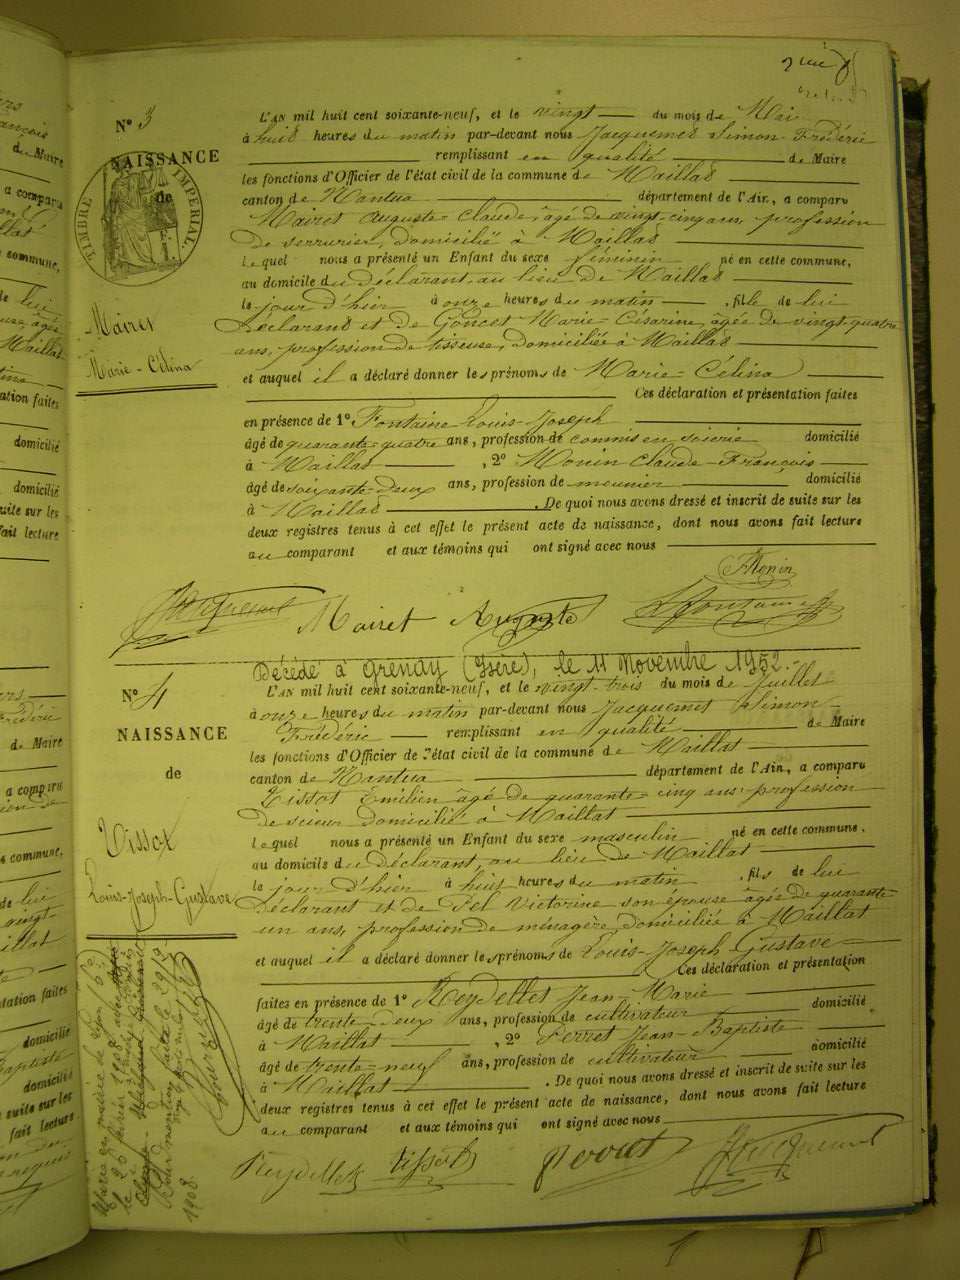 N° 3
NAISSANCE
de
TIMBRE IMPÉRIAL.
Mairet
Marie-Célina
L'AN mil huit cent soixante-neuf, et le vingt du mois de Mai
à huit heures du matin par-devant nous Jacquemet Simon-Frédéric
remplissant en qualité de Maire
les fonctions d'Officier de l'état civil de la commune de Maillat
canton de Nantua département de l'Ain, a comparu
Mairet Auguste-Claude, âgé de vingt-cinq ans, profession
de serrurier, domicilié à Maillat
lequel nous a présenté un Enfant du sexe féminin né en cette commune,
au domicile du déclarant, au lieu de Maillat
le jour d'hier à onze heures du matin, fille de lui
déclarant et de Goncet Marie-Césarine, âgée de vingt-quatre
ans, profession de tisseuse, domiciliée à Maillat
et auquel il a déclaré donner les prénoms de Marie-Célina
Ces déclaration et présentation faites
en présence de 1° Fontaine Louis-Joseph
âgé de quarante-quatre ans, profession de commis en soierie domicilié
à Maillat, 2° Monin Claude-François
âgé de soixante-deux ans, profession de meunier domicilié
à Maillat. De quoi nous avons dressé et inscrit de suite sur les
deux registres tenus à cet effet le présent acte de naissance, dont nous avons fait lecture
au comparant et aux témoins qui ont signé avec nous
Monin
Jacquemet Mairet Auguste Fontaine
Décédé à Grenay (Isère), le 11 Novembre 1952.-
N° 4
NAISSANCE
de
Tissot
Louis-Joseph-Gustave
L'AN mil huit cent soixante-neuf, et le vingt-trois du mois de Juillet
à onze heures du matin par-devant nous Jacquemet Simon-
Frédéric remplissant en qualité de Maire
les fonctions d'Officier de l'état civil de la commune de Maillat
canton de Nantua département de l'Ain, a comparu
Tissot Emilien âgé de quarante-cinq ans profession
de scieur domicilié à Maillat
lequel nous a présenté un Enfant du sexe masculin né en cette commune.
au domicile du déclarant, au lieu de Maillat
le jour d'hier à huit heures du matin, fils de lui
déclarant et de Pel Victorine son épouse âgée de quarante-
un ans, profession de ménagère, domiciliée à Maillat
et auquel il a déclaré donner les prénoms de Louis-Joseph-Gustave
Ces déclaration et présentation
faites en présence de 1° Reydellet Jean-Marie
âgé de trente-deux ans, profession de cultivateur domicilié
à Maillat, 2° Perret Jean-Baptiste
âgé de trente-neuf ans, profession de cultivateur domicilié
à Maillat. De quoi nous avons dressé et inscrit de suite sur les
deux registres tenus à cet effet le présent acte de naissance, dont nous avons fait lecture
au comparant et aux témoins qui ont signé avec nous
Reydellet Tissot Perret Jacquemet
Marié en mairie de Lyon (6e)
le 20 février 1908 avec
1908